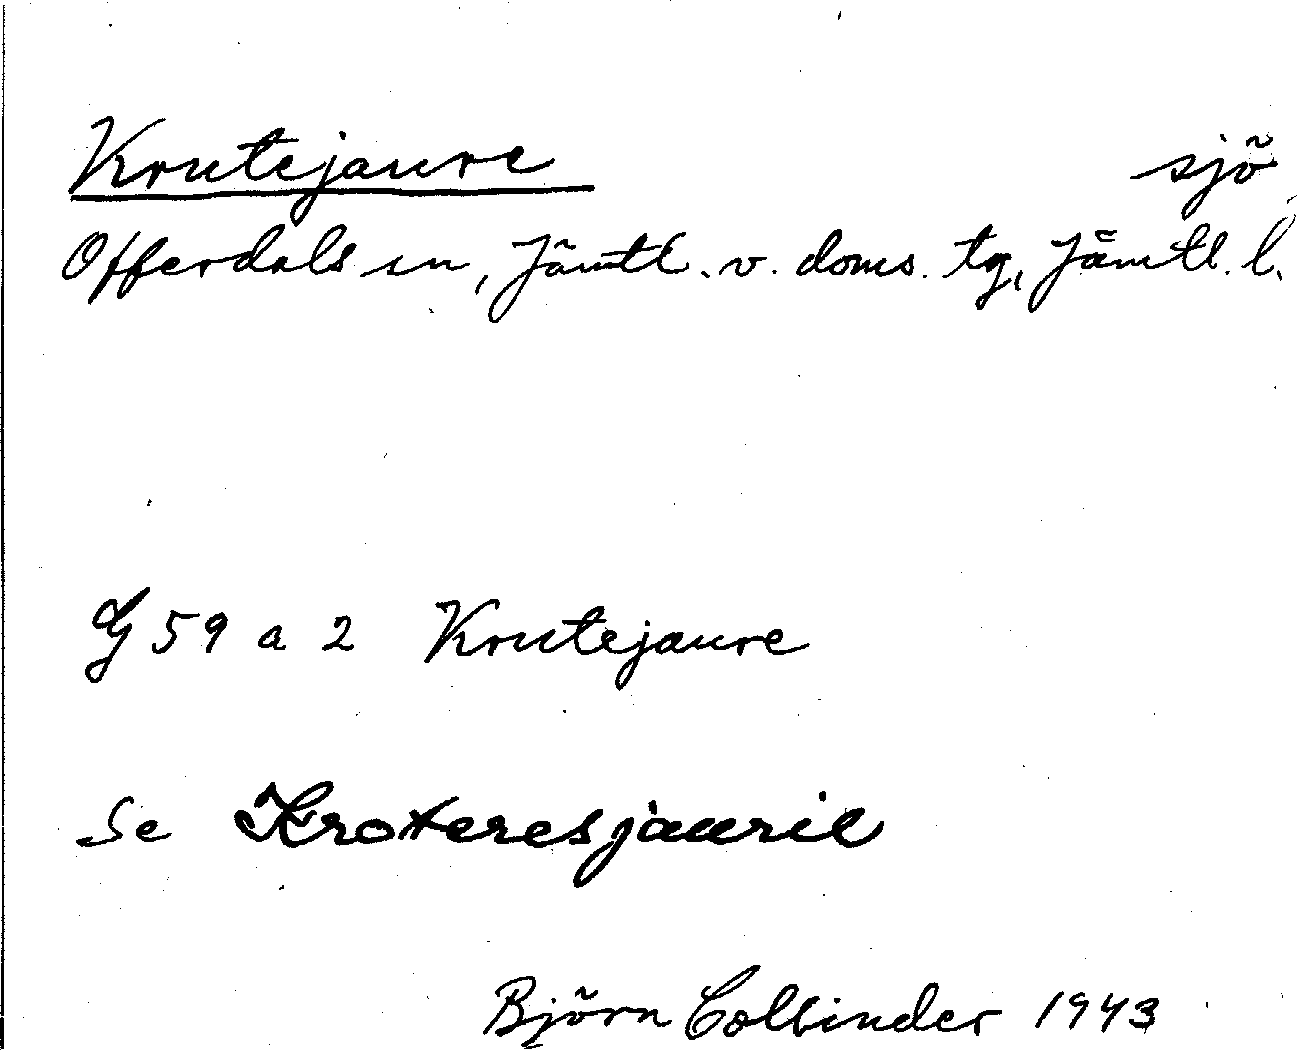 Krutejaure sjö
Offerdals sn, Jämtl. v. doms. tg, Jämtl. l.
G 59 a 2 Krutejaure
Se Kroteresjaurie
Björn Collinder 1943